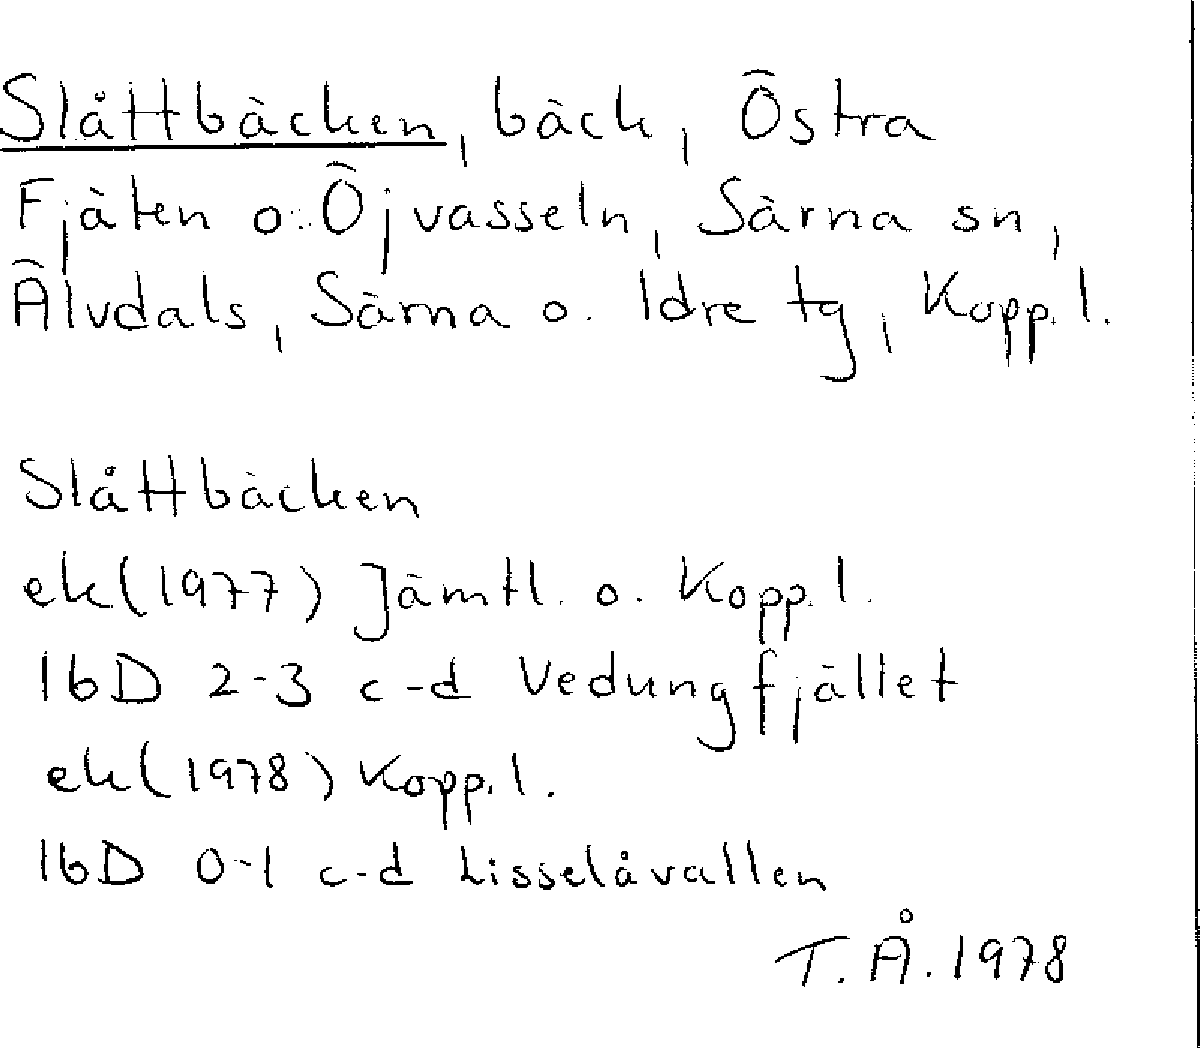 Slåttbäcken, bäck, Östra
Fjäten o. Öjvasseln, Särna sn,
Älvdals, Särna o. Idre tg, Kopp. l.
Slåttbäcken
ek(1977) Jämtl. o. Kopp. l.
16D 2-3 c-d Vedungfjället
ek(1978) Kopp. l.
16D 0-1 c-d Lisselåvallen
T.Å. 1978